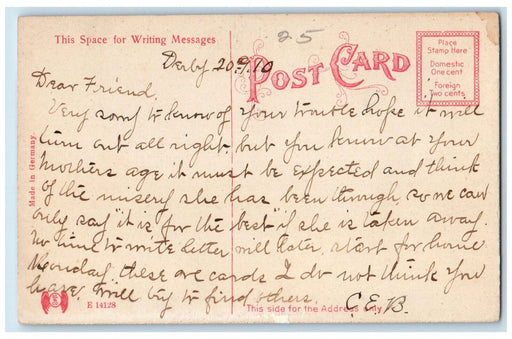 This Space for Writing Messages
25
POST CARD
Place
Stamp Here
Domestic
One cent
Foreign
Two cents
Derby 20/9/10
Dear Friend,
Very sorry to know of your trouble hope it will
turn out all right, but you know at your
Mothers age it must be expected and think
of the misery she has been through, so we can
only say "it is for the best" if she is taken away.
No time to write letter will later, start for home
Monday, these are cards I do not think you
have, will try to find others. C.E.B.
Made in Germany.
E 14128
This side for the Address only